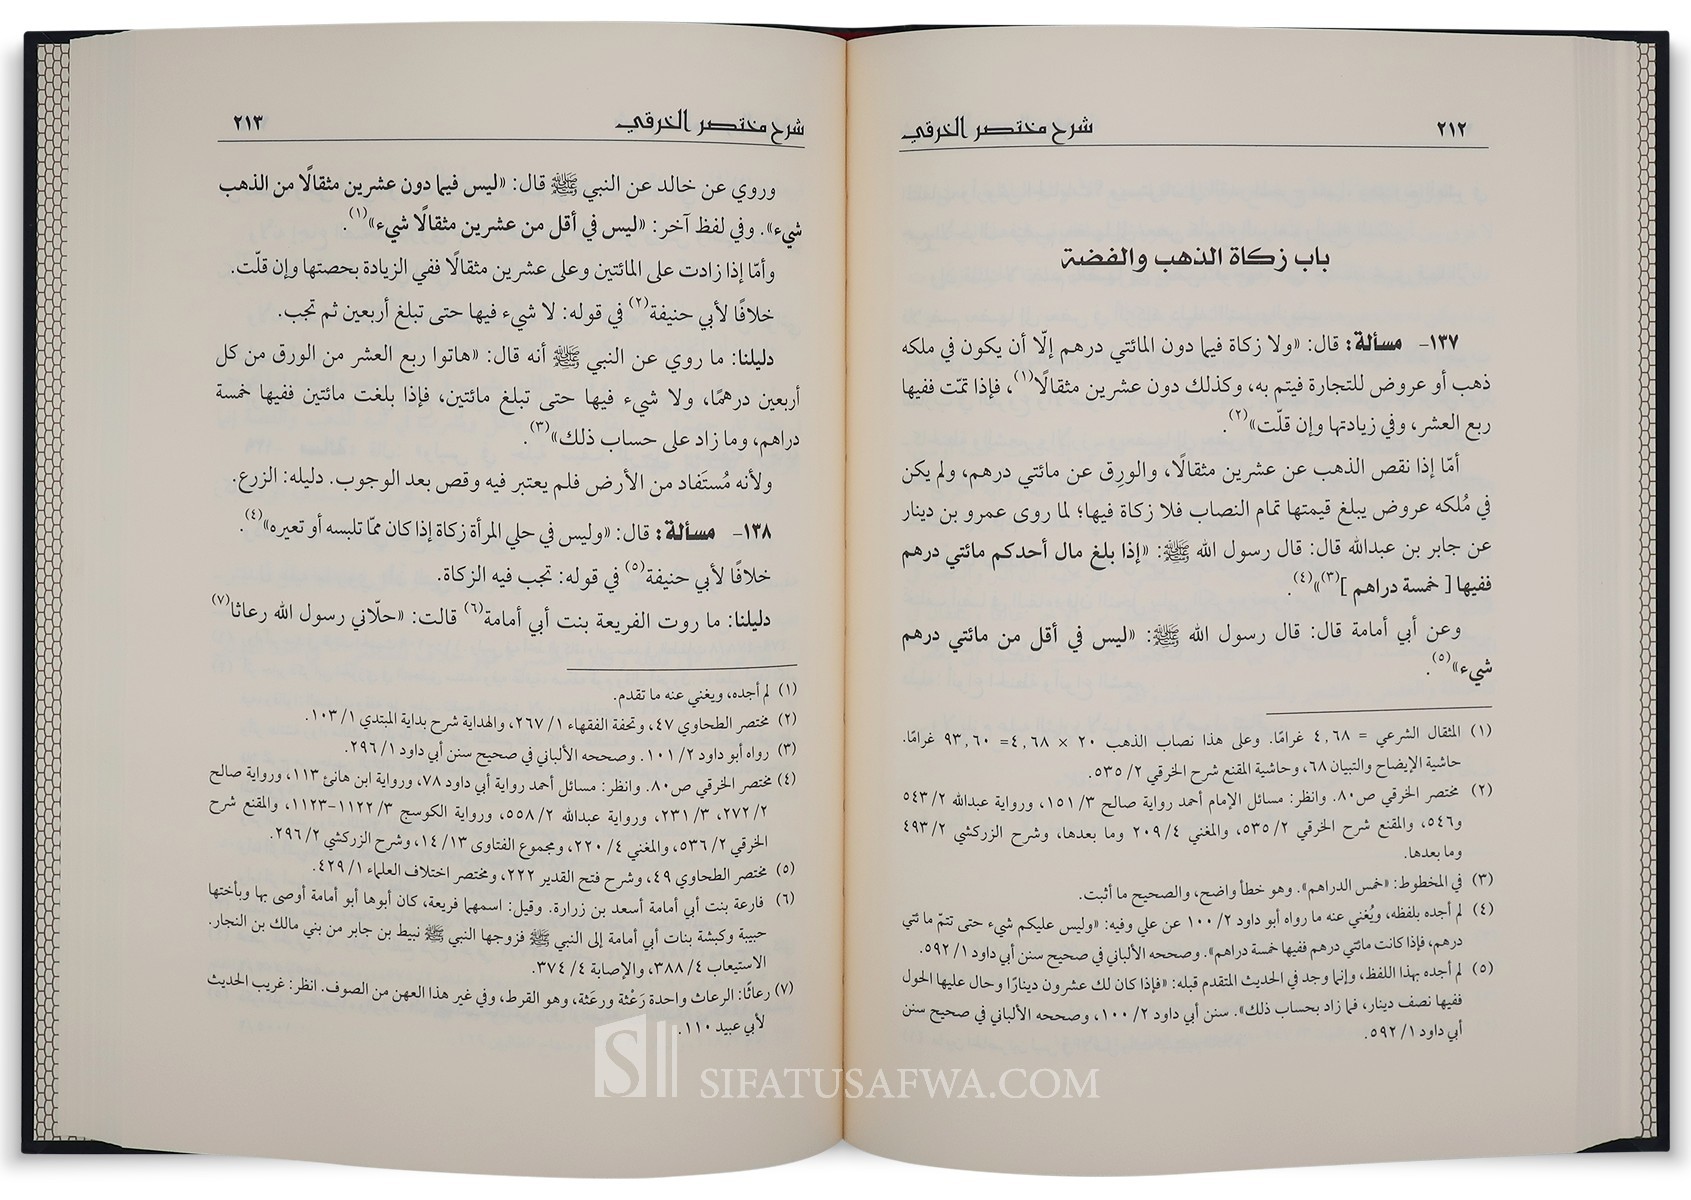 ٢١٢ شرح مختصر الخرقي
باب زكاة الذهب والفضة
١٣٧- مسألة: قال: «ولا زكاة فيما دون المائتي درهم إلّا أن يكون في ملكه
ذهب أو عروض للتجارة فيتم به، وكذلك دون عشرين مثقالًا(١)، فإذا تمّت ففيها
ربع العشر، وفي زيادتها وإن قلّت»(٢).
أمّا إذا نقص الذهب عن عشرين مثقالًا، والورِق عن مائتي درهم، ولم يكن
في مُلكه عروض يبلغ قيمتها تمام النصاب فلا زكاة فيها؛ لما روى عمرو بن دينار
عن جابر بن عبدالله قال: قال رسول الله ﷺ: «إذا بلغ مال أحدكم مائتي درهم
ففيها [ خمسة دراهم ](٣)»(٤).
وعن أبي أمامة قال: قال رسول الله ﷺ: «ليس في أقل من مائتي درهم
شيء»(٥).
(١) المثقال الشرعي = ٤,٦٨ غرامًا. وعلى هذا نصاب الذهب ٢٠ × ٤,٦٨= ٩٣,٦٠ غرامًا.
حاشية الإيضاح والتبيان ٦٨، وحاشية المقنع شرح الخرقي ٢/ ٥٣٥.
(٢) مختصر الخرقي ص٨٠. وانظر: مسائل الإمام أحمد رواية صالح ٣/ ١٥١، ورواية عبدالله ٢/ ٥٤٣
و٥٤٦، والمقنع شرح الخرقي ٢/ ٥٣٥، والمغني ٤/ ٢٠٩ وما بعدها، وشرح الزركشي ٢/ ٤٩٣
وما بعدها.
(٣) في المخطوط: «خمس الدراهم». وهو خطأ واضح، والصحيح ما أثبت.
(٤) لم أجده بلفظه، ويُغني عنه ما رواه أبو داود ٢/ ١٠٠ عن علي وفيه: «وليس عليكم شيء حتى تتمّ مائتي
درهم، فإذا كانت مائتي درهم ففيها خمسة دراهم». وصححه الألباني في صحيح سنن أبي داود ١/ ٥٩٢.
(٥) لم أجده بهذا اللفظ، وإنما وجد في الحديث المتقدم قبله: «فإذا كان لك عشرون دينارًا وحال عليها الحول
ففيها نصف دينار، فما زاد بحساب ذلك». سنن أبي داود ٢/ ١٠٠، وصححه الألباني في صحيح سنن
أبي داود ١/ ٥٩٢.
شرح مختصر الخرقي ٢١٣
وروي عن خالد عن النبي ﷺ قال: «ليس فيما دون عشرين مثقالًا من الذهب
شيء». وفي لفظ آخر: «ليس في أقل من عشرين مثقالًا شيء»(١).
وأمّا إذا زادت على المائتين وعلى عشرين مثقالًا ففي الزيادة بحصتها وإن قلّت.
خلافًا لأبي حنيفة(٢) في قوله: لا شيء فيها حتى تبلغ أربعين ثم تجب.
دليلنا: ما روي عن النبي ﷺ أنه قال: «هاتوا ربع العشر من الورق من كل
أربعين درهمًا، ولا شيء فيها حتى تبلغ مائتين، فإذا بلغت مائتين ففيها خمسة
دراهم، وما زاد على حساب ذلك»(٣).
ولأنه مُستَفاد من الأرض فلم يعتبر فيه وقص بعد الوجوب. دليله: الزرع.
١٣٨- مسألة: قال: «وليس في حلي المرأة زكاة إذا كان ممّا تلبسه أو تعيره»(٤).
خلافًا لأبي حنيفة(٥) في قوله: تجب فيه الزكاة.
دليلنا: ما روت الفريعة بنت أبي أمامة(٦) قالت: «حلّاني رسول الله رعاثا(٧)
(١) لم أجده، ويغني عنه ما تقدم.
(٢) مختصر الطحاوي ٤٧، وتحفة الفقهاء ١/ ٢٦٧، والهداية شرح بداية المبتدي ١/ ١٠٣.
(٣) رواه أبو داود ٢/ ١٠١. وصححه الألباني في صحيح سنن أبي داود ١/ ٢٩٦.
(٤) مختصر الخرقي ص٨٠. وانظر: مسائل أحمد رواية أبي داود ٧٨، ورواية ابن هانئ ١١٣، ورواية صالح
٢/ ٢٧٢، ٣/ ٢٣١، ورواية عبدالله ٢/ ٥٥٨، ورواية الكوسج ٣/ ١١٢٢-١١٢٣، والمقنع شرح
الخرقي ٢/ ٥٣٦، والمغني ٤/ ٢٢٠، ومجموع الفتاوى ١٣/ ١٤، وشرح الزركشي ٢/ ٢٩٦.
(٥) مختصر الطحاوي ٤٩، وشرح فتح القدير ٢٢٢، ومختصر اختلاف العلماء ١/ ٤٢٩.
(٦) فارعة بنت أبي أمامة أسعد بن زرارة. وقيل: اسمهما فريعة، كان أبوها أبو أمامة أوصى بها وبأختها
حبيبة وكبشة بنات أبي أمامة إلى النبي ﷺ فزوجها النبي ﷺ نبيط بن جابر من بني مالك بن النجار.
الاستيعاب ٤/ ٣٨٨، والإصابة ٤/ ٣٧٤.
(٧) رعاثًا: الرعاث واحدة رَعْثة ورعَثة، وهو القرط، وفي غير هذا العهن من الصوف. انظر: غريب الحديث
لأبي عبيد ١١٠.
SIFATUSAFWA.COM